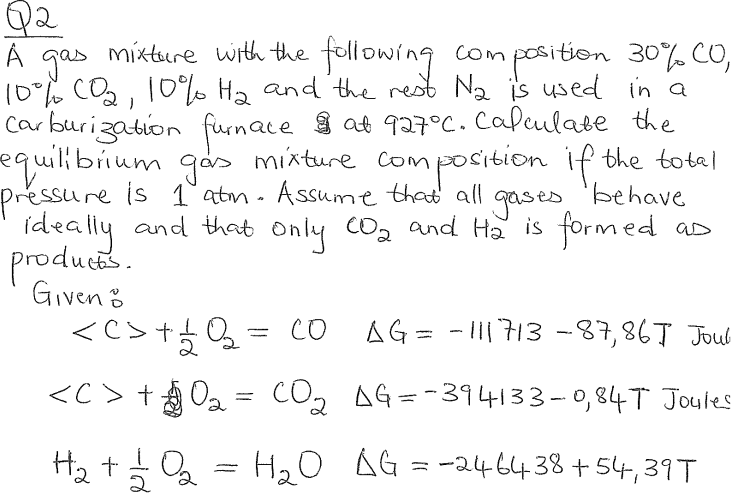 Q2
A gas mixture with the following composition 30% CO,
10% CO2, 10% H2 and the rest N2 is used in a
carburization furnace at 927°C. Calculate the
equilibrium gas mixture composition if the total
pressure is 1 atm. Assume that all gases behave
ideally and that only CO2 and H2 is formed as
products.
Given:
<C> + 1/2 O2 = CO ΔG = -111713 - 87,86T Joul
<C> + O2 = CO2 ΔG = -394133 - 0,84T Joules
H2 + 1/2 O2 = H2O ΔG = -246438 + 54,39T